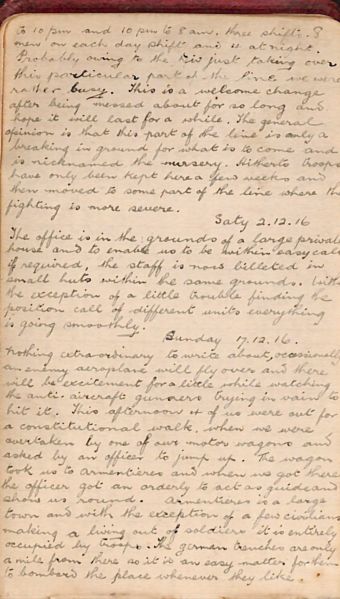 to 10 pm and 10 pm to 8 am. three shifts. 8
men on each day shift and 4 at night.
Probably owing to the Div just taking over
this particular part of the line we were
rather busy. This is a welcome change
after being messed about for so long and
hope it will last for a while. The general
opinion is that this part of the line is only a
breaking in ground for what is to come and
is nicknamed the nursery. Hitherto troops
have only been kept here a few weeks and
then moved to some part of the line where the
fighting is more severe.
Saty 2.12.16
The office is in the grounds of a large private
house and to enable us to be within easy call
if required, the staff is now billeted in
small huts within the same grounds. With
the exception of a little trouble finding the
position call of different units everything
is going smoothly.
Sunday 17.12.16.
Nothing extraordinary to write about, occasionally
an enemy aeroplane will fly over and there
will be excitement for a little while watching
the anti-aircraft gunners trying in vain to
hit it. This afternoon 4 of us were out for
a constitutional walk, when we were
overtaken by one of our motor wagons and
asked by an officer to jump up. The wagon
took us to Armentieres and when we got there
the officer got an orderly to act as guide and
show us round. Armentieres is a large
town and with the exception of a few civilians
making a living out of soldiers it is entirely
occupied by troops. The german trenches are only
a mile from there so it is an easy matter for them
to bombard the place whenever they like.